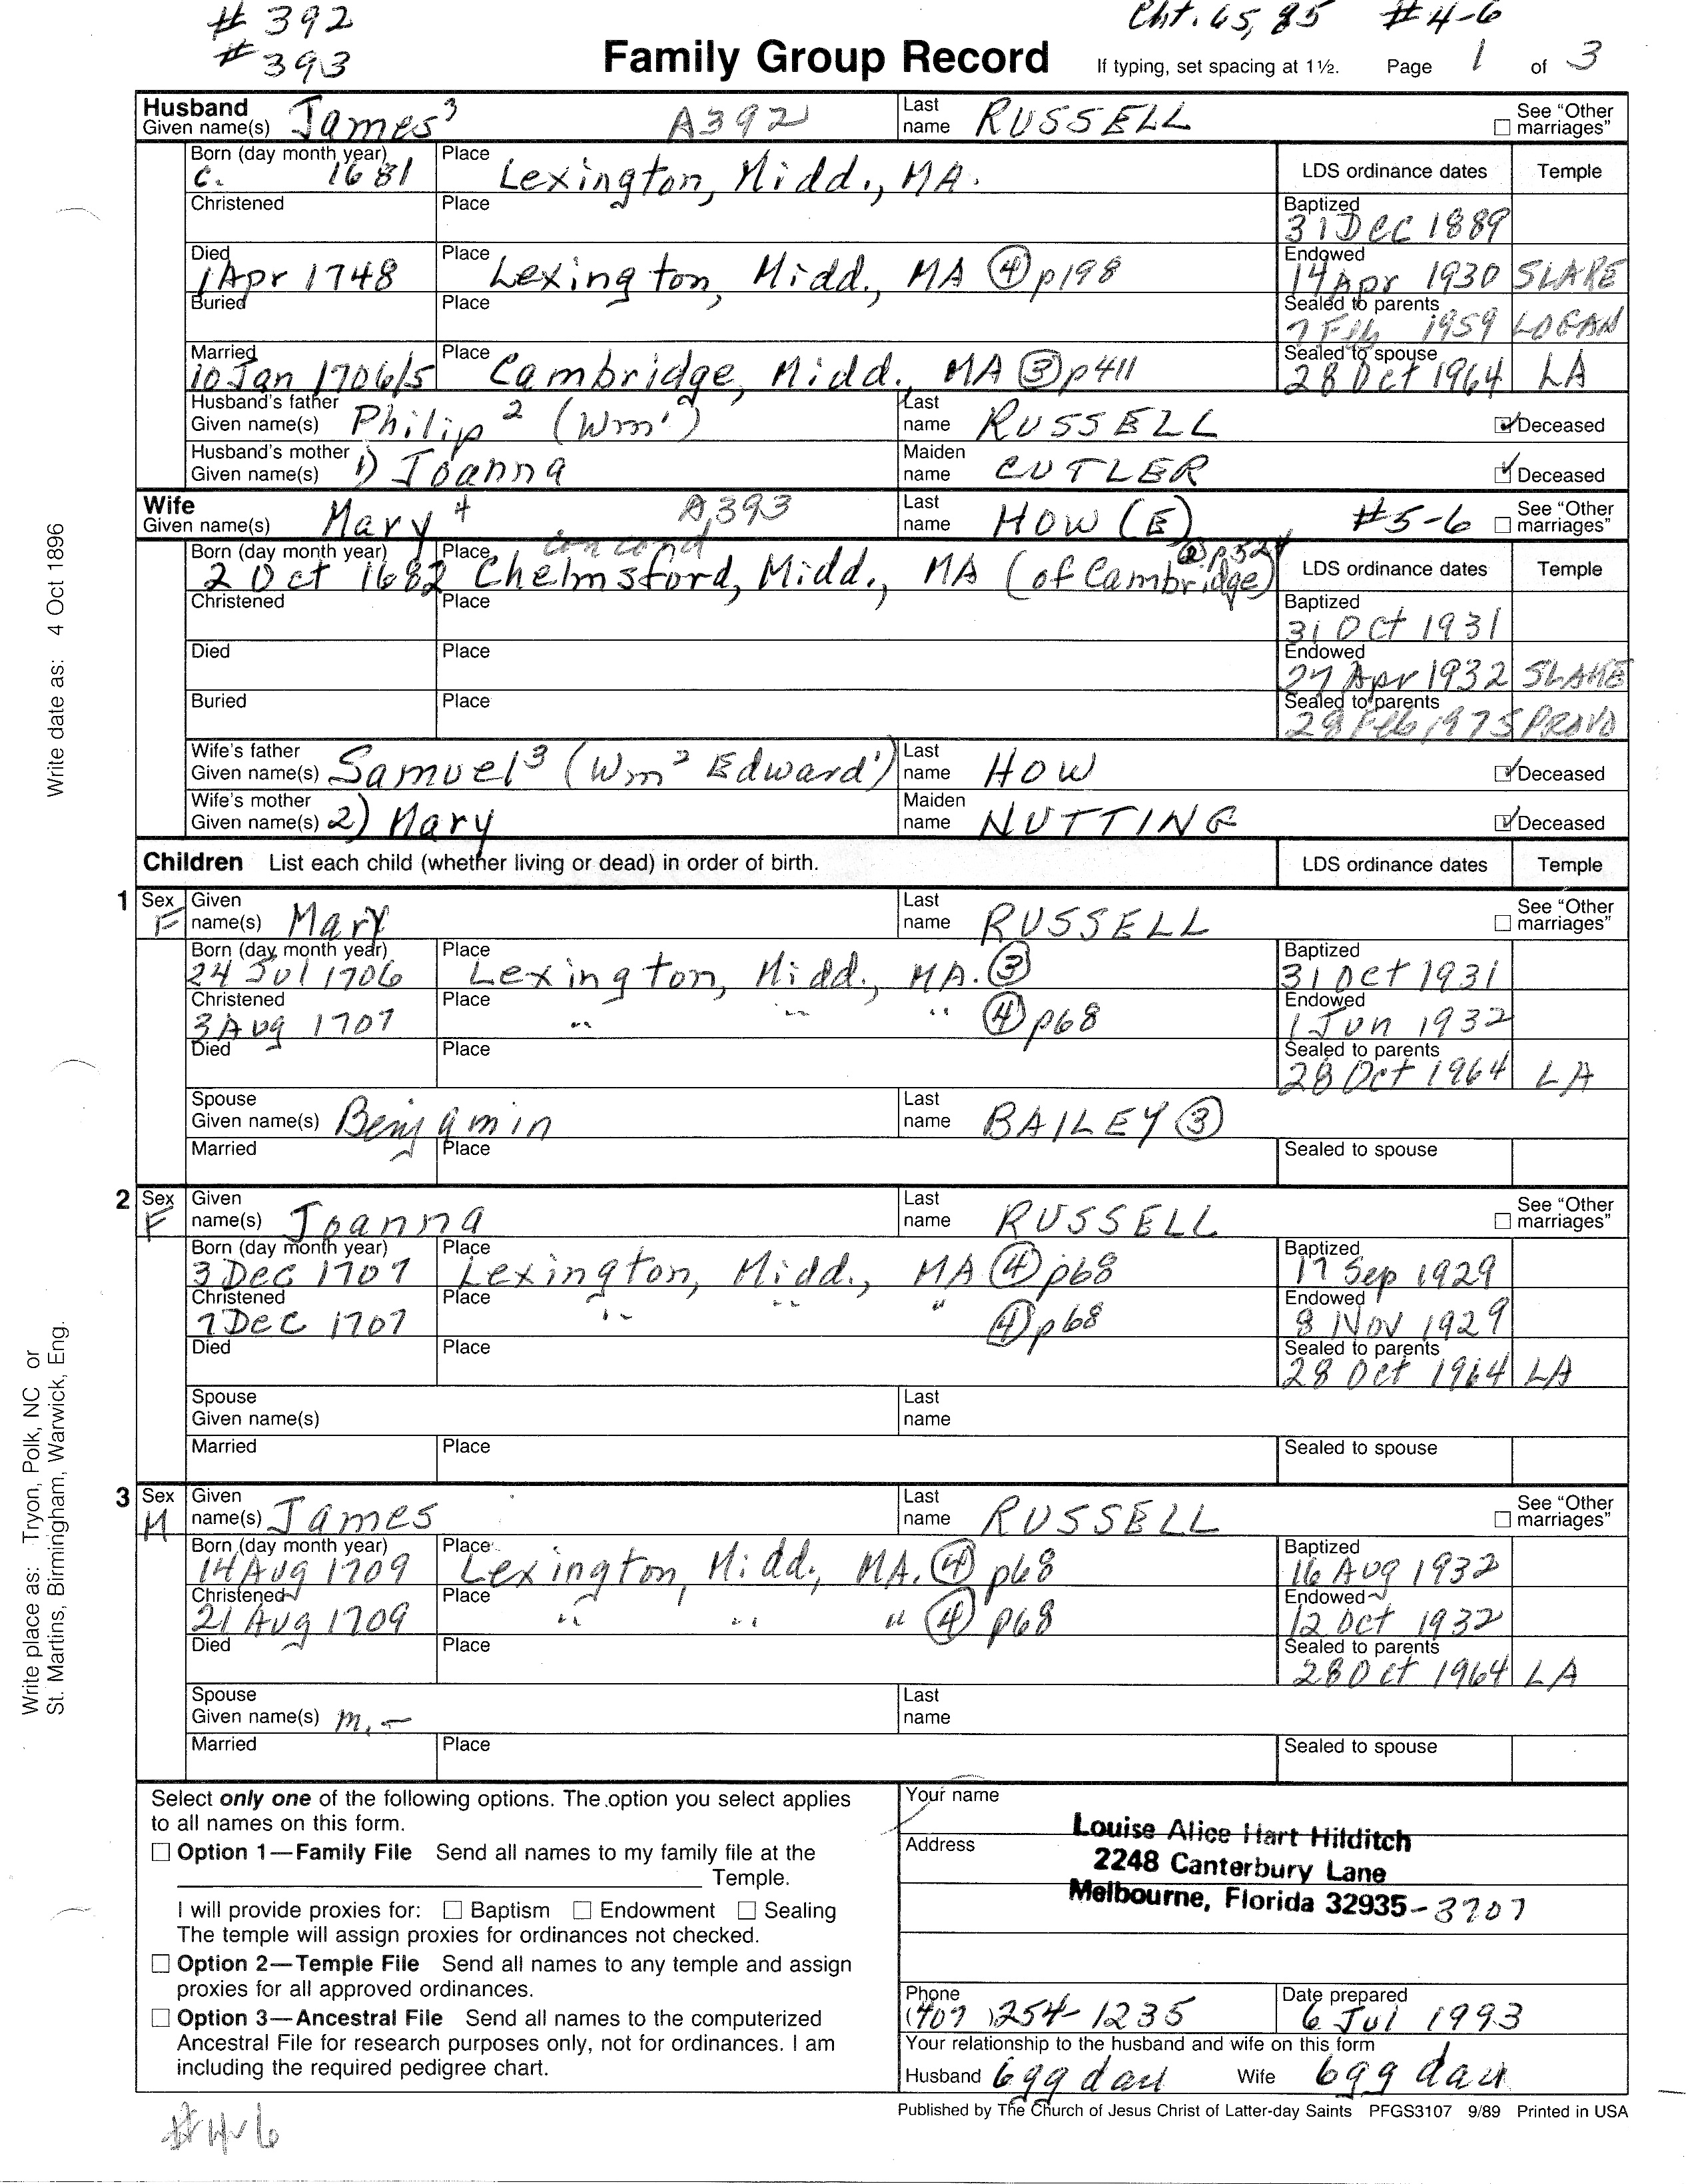 # 392 Cht. 65, 85 #4-6
# 393 Family Group Record If typing, set spacing at 1½. Page 1 of 3
Husband
Given name(s) James³ A392 Last name RUSSELL ☐ See "Other marriages"
Born (day month year) c. 1681 Place Lexington, Midd., MA. LDS ordinance dates Temple
Christened Place Baptized 31 Dec 1889
Died 1 Apr 1748 Place Lexington, Midd., MA ④ p198 Endowed 14 Apr 1930 SLAKE
Buried Place Sealed to parents 7 Feb 1959 LOGAN
Married 10 Jan 1706/5 Place Cambridge, Midd., MA ③ p411 Sealed to spouse 28 Oct 1964 LA
Husband's father Given name(s) Philip² (Wm¹) Last name RUSSELL ☑ Deceased
Husband's mother Given name(s) 1) Joanna Maiden name CUTLER ☑ Deceased
Wife
Given name(s) Mary⁴ A393 Last name HOW (E) #5-6 ☐ See "Other marriages"
Born (day month year) 2 Oct 1682 Place concord Chelmsford, Midd., MA (of Cambridge) ② p524 LDS ordinance dates Temple
Christened Place Baptized 31 Oct 1931
Died Place Endowed 27 Apr 1932 SLAKE
Buried Place Sealed to parents 28 Feb 1975 PROVO
Wife's father Given name(s) Samuel³ (Wm² Edward¹) Last name HOW ☑ Deceased
Wife's mother Given name(s) 2) Mary Maiden name NUTTING ☑ Deceased
Children List each child (whether living or dead) in order of birth. LDS ordinance dates Temple
1 Sex F Given name(s) Mary Last name RUSSELL ☐ See "Other marriages"
Born (day month year) 24 Jul 1706 Place Lexington, Midd., MA. ③ Baptized 31 Oct 1931
Christened 3 Aug 1707 Place " " " ④ p68 Endowed 1 Jun 1932
Died Place Sealed to parents 28 Oct 1964 LA
Spouse Given name(s) Benjamin Last name BAILEY ③
Married Place Sealed to spouse
2 Sex F Given name(s) Joanna Last name RUSSELL ☐ See "Other marriages"
Born (day month year) 3 Dec 1707 Place Lexington, Midd., MA ④ p68 Baptized 17 Sep 1929
Christened 7 Dec 1707 Place " " " ④ p68 Endowed 8 Nov 1929
Died Place Sealed to parents 28 Oct 1964 LA
Spouse Given name(s) Last name
Married Place Sealed to spouse
3 Sex M Given name(s) James Last name RUSSELL ☐ See "Other marriages"
Born (day month year) 14 Aug 1709 Place Lexington, Midd., MA. ④ p68 Baptized 16 Aug 1932
Christened 21 Aug 1709 Place " " " ④ p68 Endowed 12 Oct 1932
Died Place Sealed to parents 28 Oct 1964 LA
Spouse Given name(s) m. – Last name
Married Place Sealed to spouse
Select only one of the following options. The option you select applies
to all names on this form.
☐ Option 1—Family File Send all names to my family file at the
Temple.
I will provide proxies for: ☐ Baptism ☐ Endowment ☐ Sealing
The temple will assign proxies for ordinances not checked.
☐ Option 2—Temple File Send all names to any temple and assign
proxies for all approved ordinances.
☐ Option 3—Ancestral File Send all names to the computerized
Ancestral File for research purposes only, not for ordinances. I am
including the required pedigree chart.
Your name Louise Alice Hart Hilditch
Address 2248 Canterbury Lane
Melbourne, Florida 32935-3707
Phone (407) 254-1235 Date prepared 6 Jul 1993
Your relationship to the husband and wife on this form
Husband 6gg dau Wife 6gg dau
Published by The Church of Jesus Christ of Latter-day Saints PFGS3107 9/89 Printed in USA
#4-6
Write date as: 4 Oct 1896
Write place as: Tryon, Polk, NC or
St. Martins, Birmingham, Warwick, Eng.